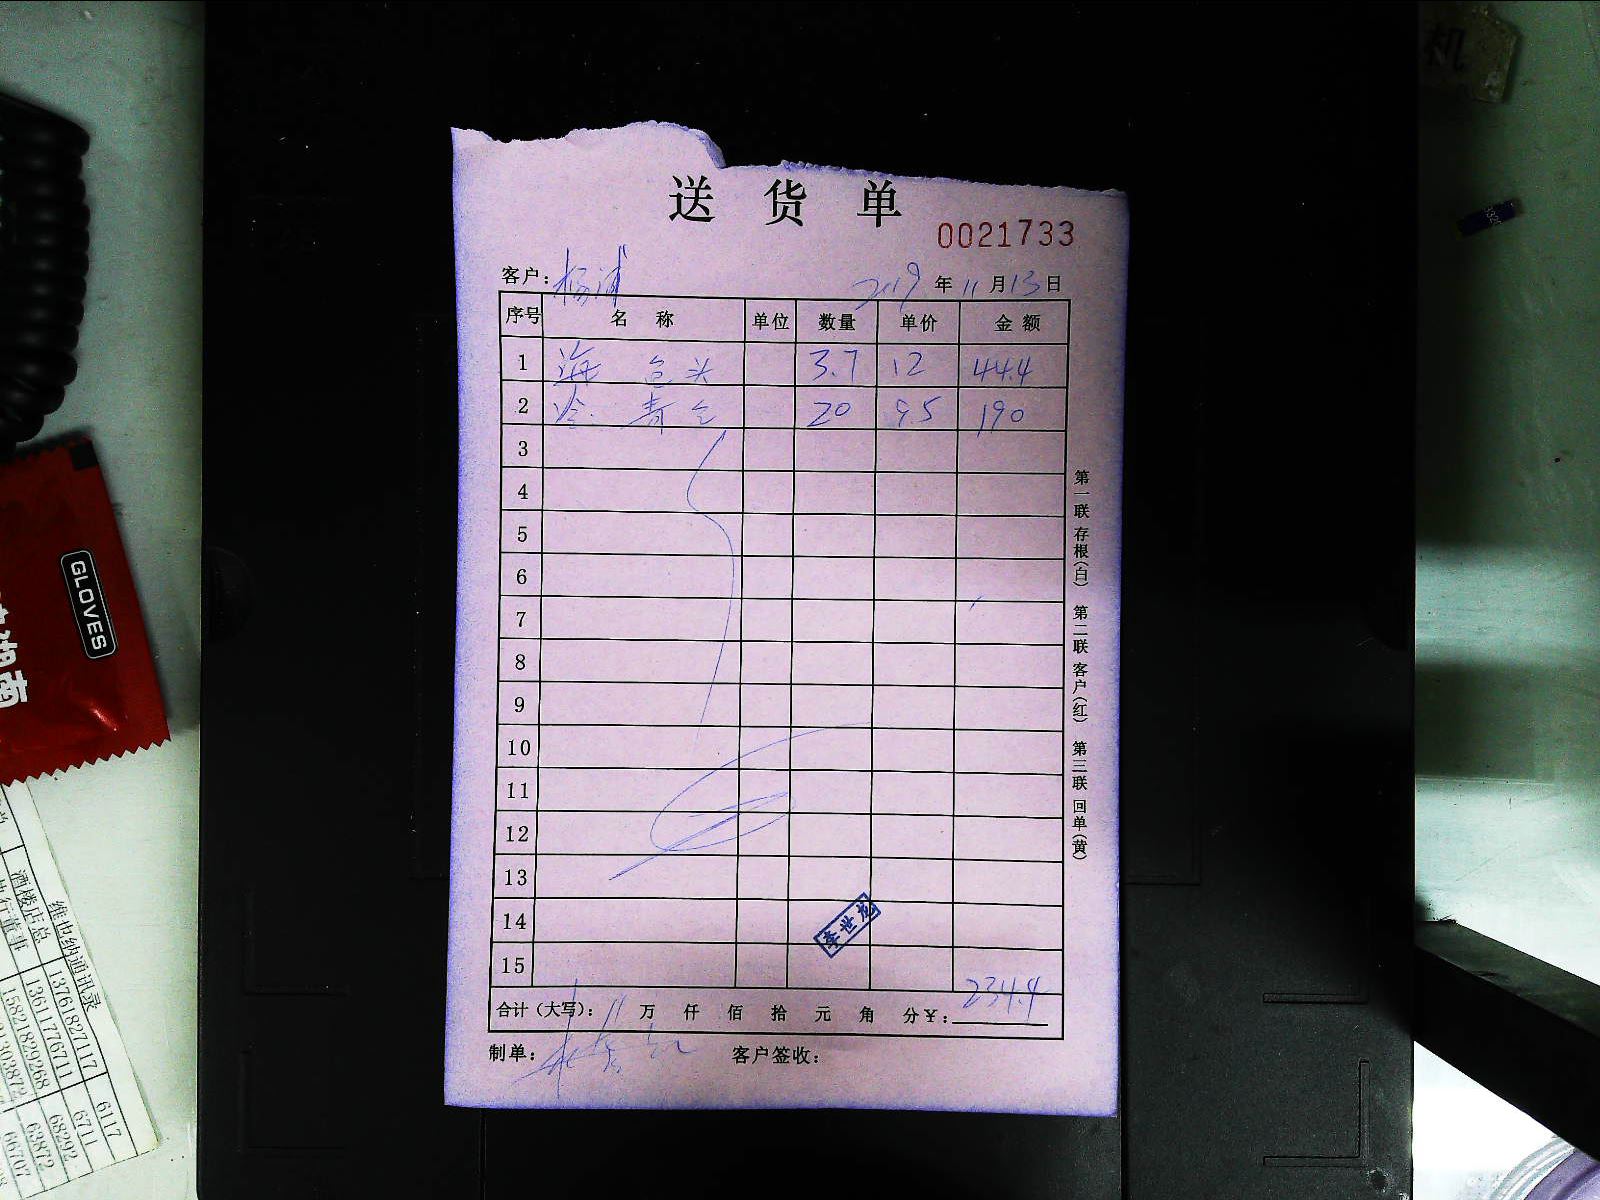 送 货 单
0021733
客户: 杨浦 2019 年 11 月 13 日
序号 名 称 单位 数量 单价 金 额
1 海 包头 3.7 12 44.4
2 冷. 青仓 20 9.5 190
3
4
5
6
7
8
9
10
11
12
13
14
15
李世龙
合计（大写）: 万 仟 佰 拾 元 角 分¥: 234.4
制单: 客户签收:
第一联 存根(白) 第二联 客户(红) 第三联 回单(黄)
机
GLOVES
维也纳通讯录
酒楼店总 13761827117 6117
13611776711 6711
15821829268 68292
63872
66707